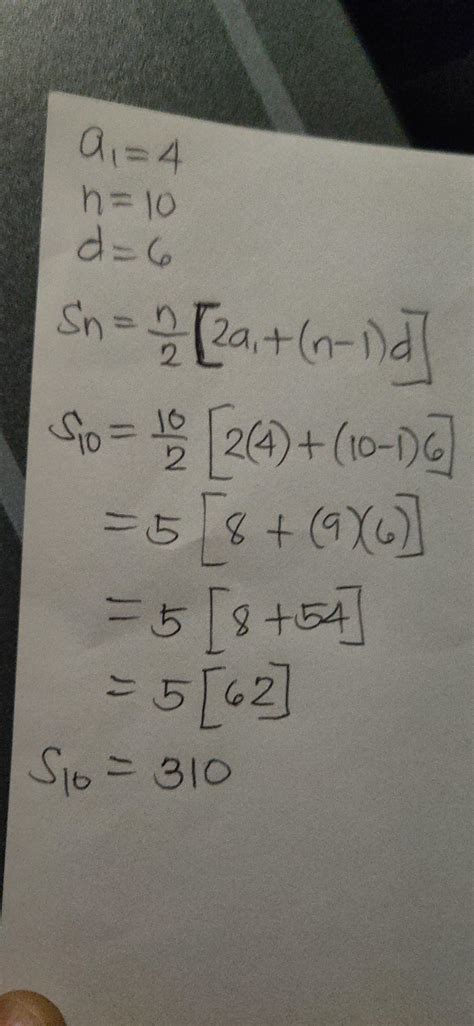 a₁=4
n=10
d=6
Sn = n/2 [2a₁+(n-1)d]
S₁₀ = 10/2 [2(4)+(10-1)6]
= 5[8+(9)(6)]
= 5[8+54]
= 5[62]
S₁₀ = 310